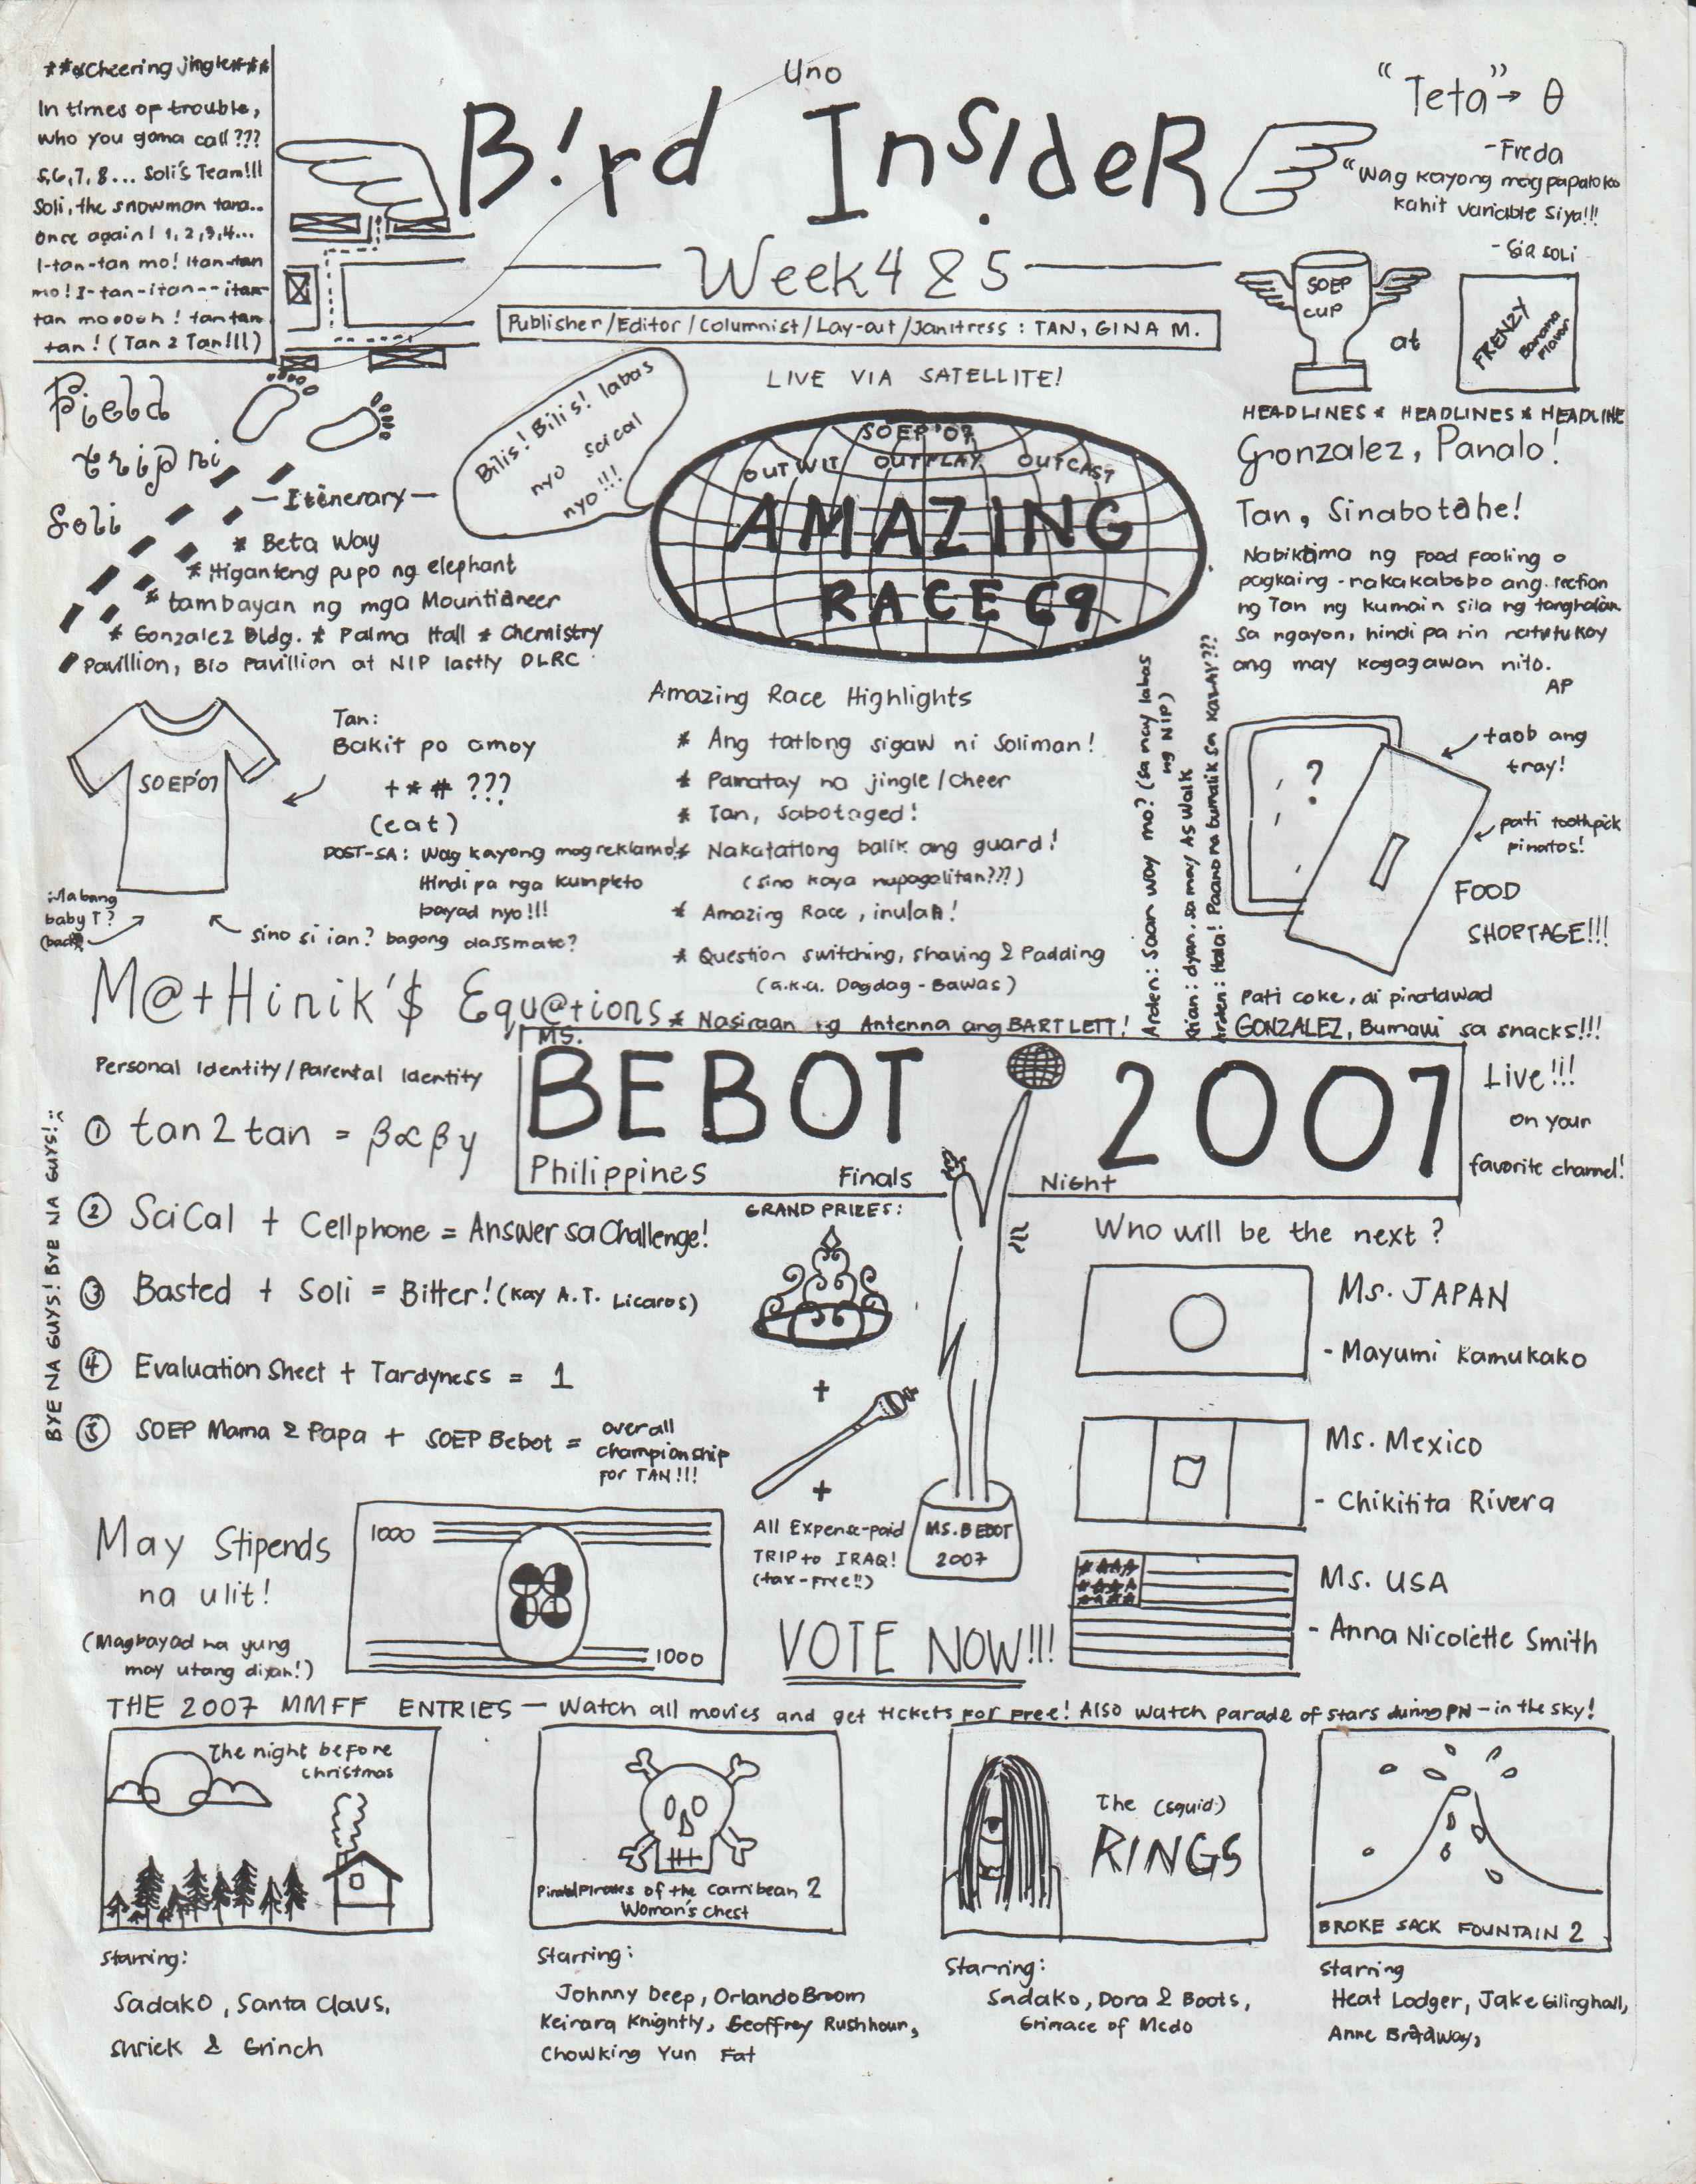 ***Cheering jingle***
In times of trouble,
who you gona call???
5,6,7,8... Soli's Team!!!
Soli, the snowman tana..
Once again! 1,2,3,4...
I-tan-tan mo! Itan-tan
mo! I-tan-itan--itan-
tan mooooh! tantan
tan! (Tan 2 Tan!!!)
Uno
B!rd InsIdeR
Week 4 & 5
Publisher/Editor/Columnist/Lay-out/Janitress: TAN, GINA M.
"Teta" → θ
-Freda
"Wag kayong magpapaloko
kahit variable siya!!!
-Sir SOLI
SOEP
CUP
at
FRENZY
Banana
Flavor
Field
trip ni
Soli
—Itinerary—
* Beta Way
* Higanteng pupo ng elephant
* tambayan ng mga Mountianeer
* Gonzalez Bldg. * Palma Hall * Chemistry
Pavillion, Bio Pavillion at NIP lastly DLRC
Bilis! Bilis! labas
nyo scical
nyo!!!
LIVE VIA SATELLITE!
SOEP'07
OUTWIT OUTPLAY OUTCAST
AMAZING
RACE 69
HEADLINES * HEADLINES * HEADLINE
Gonzalez, Panalo!
Tan, Sinabotahe!
Nabiktima ng food fooling o
pagkaing-nakakabobo ang section
ng Tan ng kumain sila ng tanghalian
sa ngayon, hindi pa rin natutukoy
ang may kagagawan nito.
AP
SOEP'07
Tan:
Bakit po amoy
+*# ???
(eat)
POST-SA: Wag kayong magreklamo!
Hindi pa nga kumpleto
bayad nyo!!!
baby T?
(back)
sino si ian? bagong classmate?
Amazing Race Highlights
* Ang tatlong sigaw ni Soliman!
* Pamatay na jingle/cheer
* Tan, Sabotaged!
* Nakatatlong balik ang guard!
(sino kaya napagalitan???)
* Amazing Race, inulan!
* Question switching, shaving & Padding
(a.k.a. Dagdag-Bawas)
* Nasiraan ng Antenna ang BARTLETT!
Arden: Saan way mo? (sa may labas
ng NIP)
Khian: dyan, sa may AS Walk
Arden: Hala! Paano na bumalik sa KALAY???
?
taob ang
tray!
pati toothpick
pinatos!
FOOD
SHORTAGE!!!
Pati coke, di pinatawad
GONZALEZ, Bumawi sa snacks!!!
M@+Hinik'$ Equ@+ions
Personal Identity/Parental Identity
① tan 2 tan = β∝βy
② SciCal + Cellphone = Answer sa Challenge!
③ Basted + Soli = Bitter! (kay A.T. Licaros)
④ Evaluation Sheet + Tardyness = 1
⑤ SOEP Mama & Papa + SOEP Bebot = overall
championship
for TAN!!!
BYE NA GUYS! BYE NA GUYS! :(
MS.
BEBOT 2007
Philippines Finals Night
Live!!!
on your
favorite channel!
GRAND PRIZES:
+
+
All Expense-paid
TRIP to IRAQ!
(tax-free!!)
MS. BEBOT
2007
VOTE NOW!!!
Who will be the next?
Ms. JAPAN
- Mayumi Kamukako
Ms. Mexico
- Chikitita Rivera
Ms. USA
- Anna Nicolette Smith
May Stipends
na ulit!
(Magbayad na yung
may utang diyan!)
1000
1000
THE 2007 MMFF ENTRIES — Watch all movies and get tickets for Free! Also watch parade of stars during PN - in the sky!
The night before
christmas
Starring:
Sadako, Santa Claus,
Shriek & Grinch
Pirates of the Carribean 2
Woman's Chest
Starring:
Johnny Deep, Orlando Broom
Keirara Knightly, Geoffrey Rushhour,
Chowking Yun Fat
The (squid)
RINGS
Starring:
Sadako, Dora & Boots,
Grimace of Mcdo
BROKE SACK FOUNTAIN 2
Starring
Heat Lodger, Jake Gilinghall,
Anne Bradway,